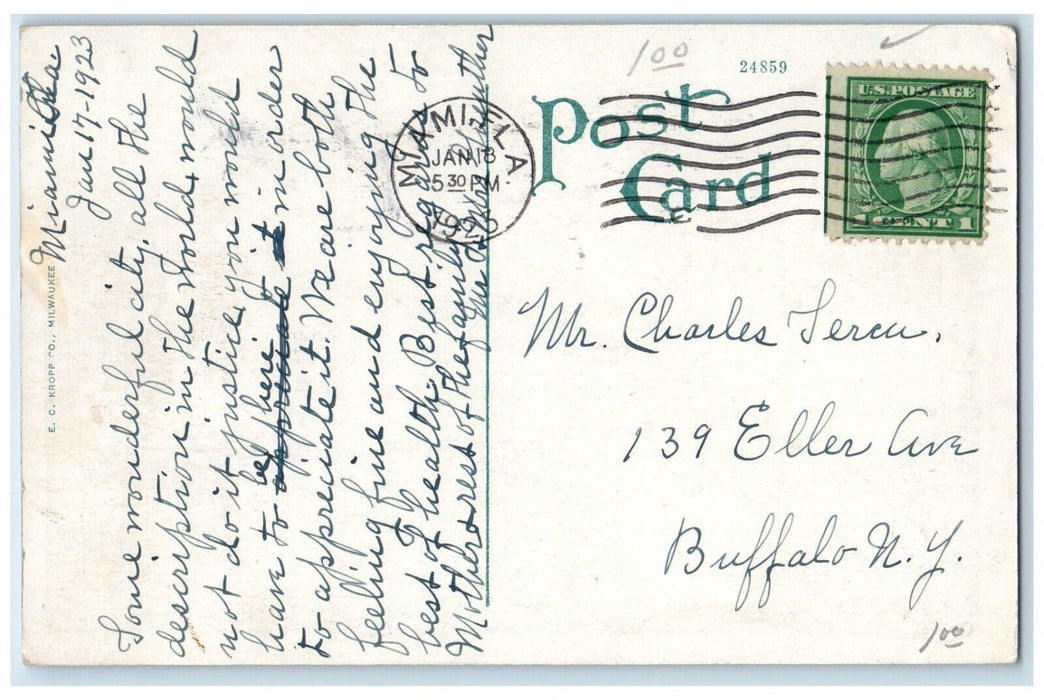 Miami Fla
Jan 17-1923
Some wonderful city, all the
description in the world, would
not do it justice, you would
have to be here in order
to appreciate it. We are both
feeling fine and enjoying the
best of health. Best regards to
Mother & rest of the family.
Mr & Mrs
E. C. KROPP CO., MILWAUKEE
1 00
24859
Post
Card
MIAMI. FLA.
JAN 18
5 30 PM
U.S. POSTAGE
1 CENT 1
Mr. Charles
139 Eller Ave
Buffalo N.Y.
1 00